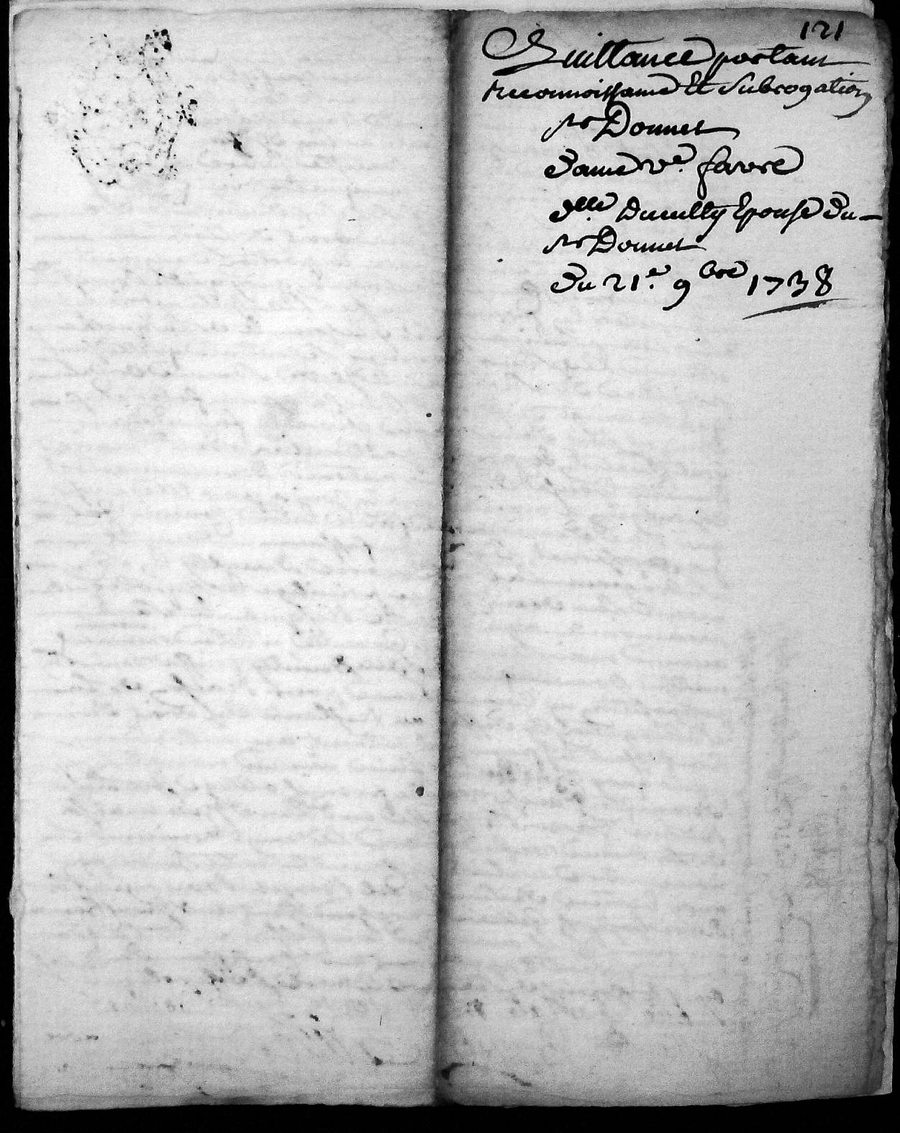 121
Quittance portant
reconnoissance Et Subrogation
sr Donnet
Dame ve. favre
dlle Ducully Epouse du
sr Donnet
Du 21e. 9bre 1738